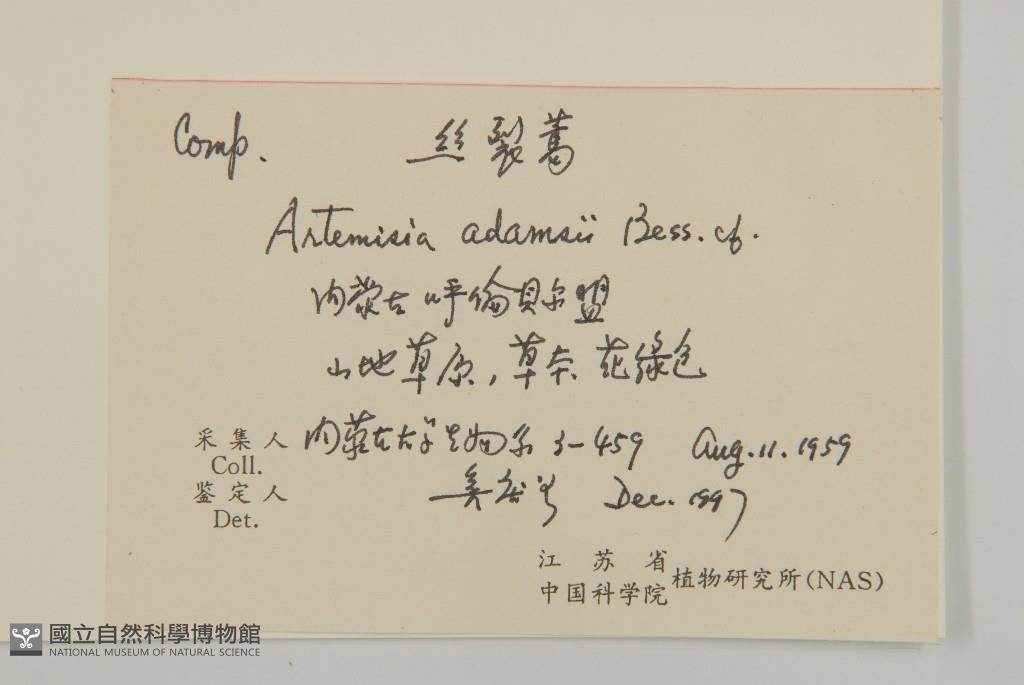 Comp. 丝裂蒿
Artemisia adamsii Bess. cf.
内蒙古呼倫貝尔盟
山地草原，草本 花綠色
采集人 内蒙古大学生物系 3-459 Aug. 11. 1959
Coll.
鉴定人 Dec. 1997
Det.
江苏省
中国科学院 植物研究所(NAS)
國立自然科學博物館
NATIONAL MUSEUM OF NATURAL SCIENCE